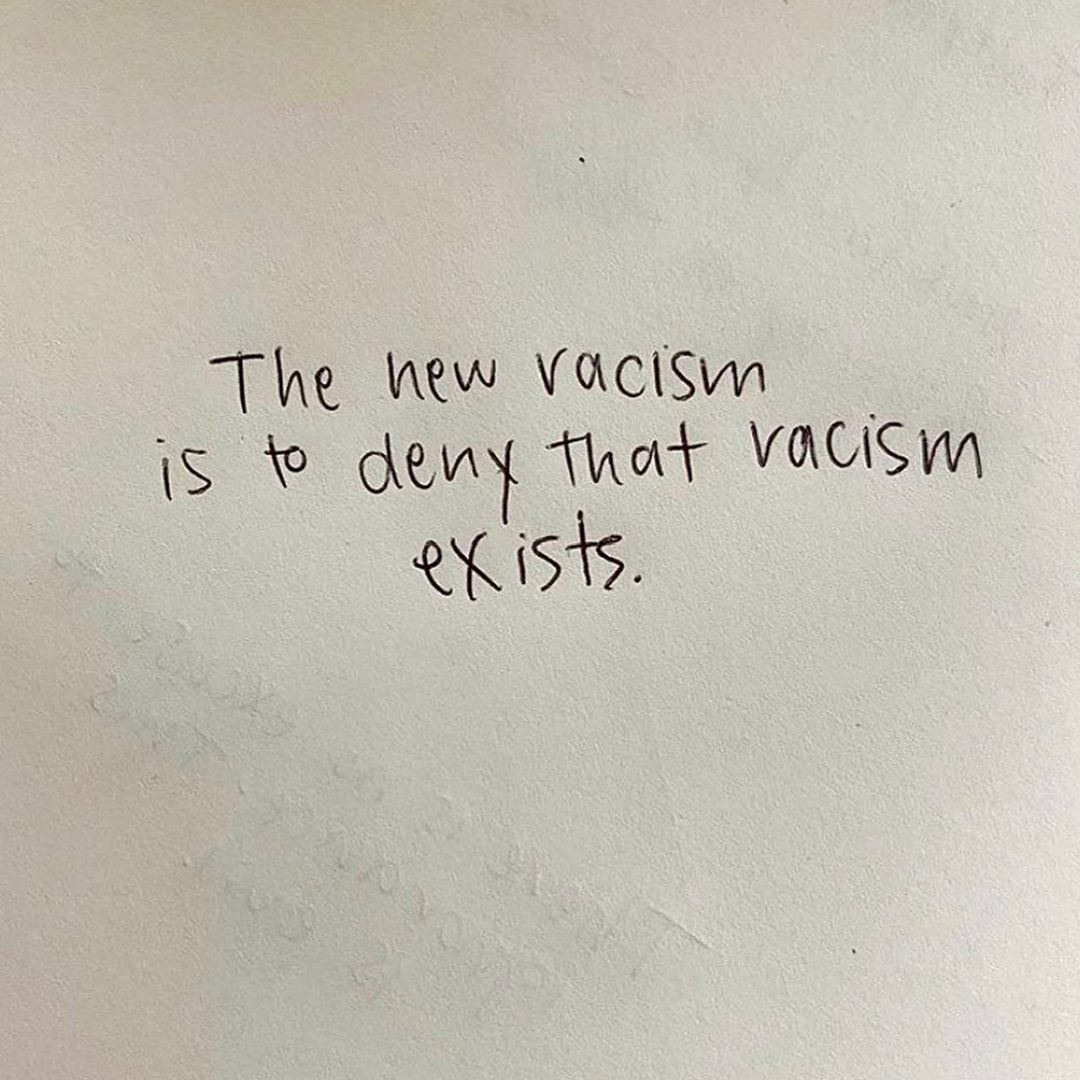 The new racism
is to deny that racism
exists.